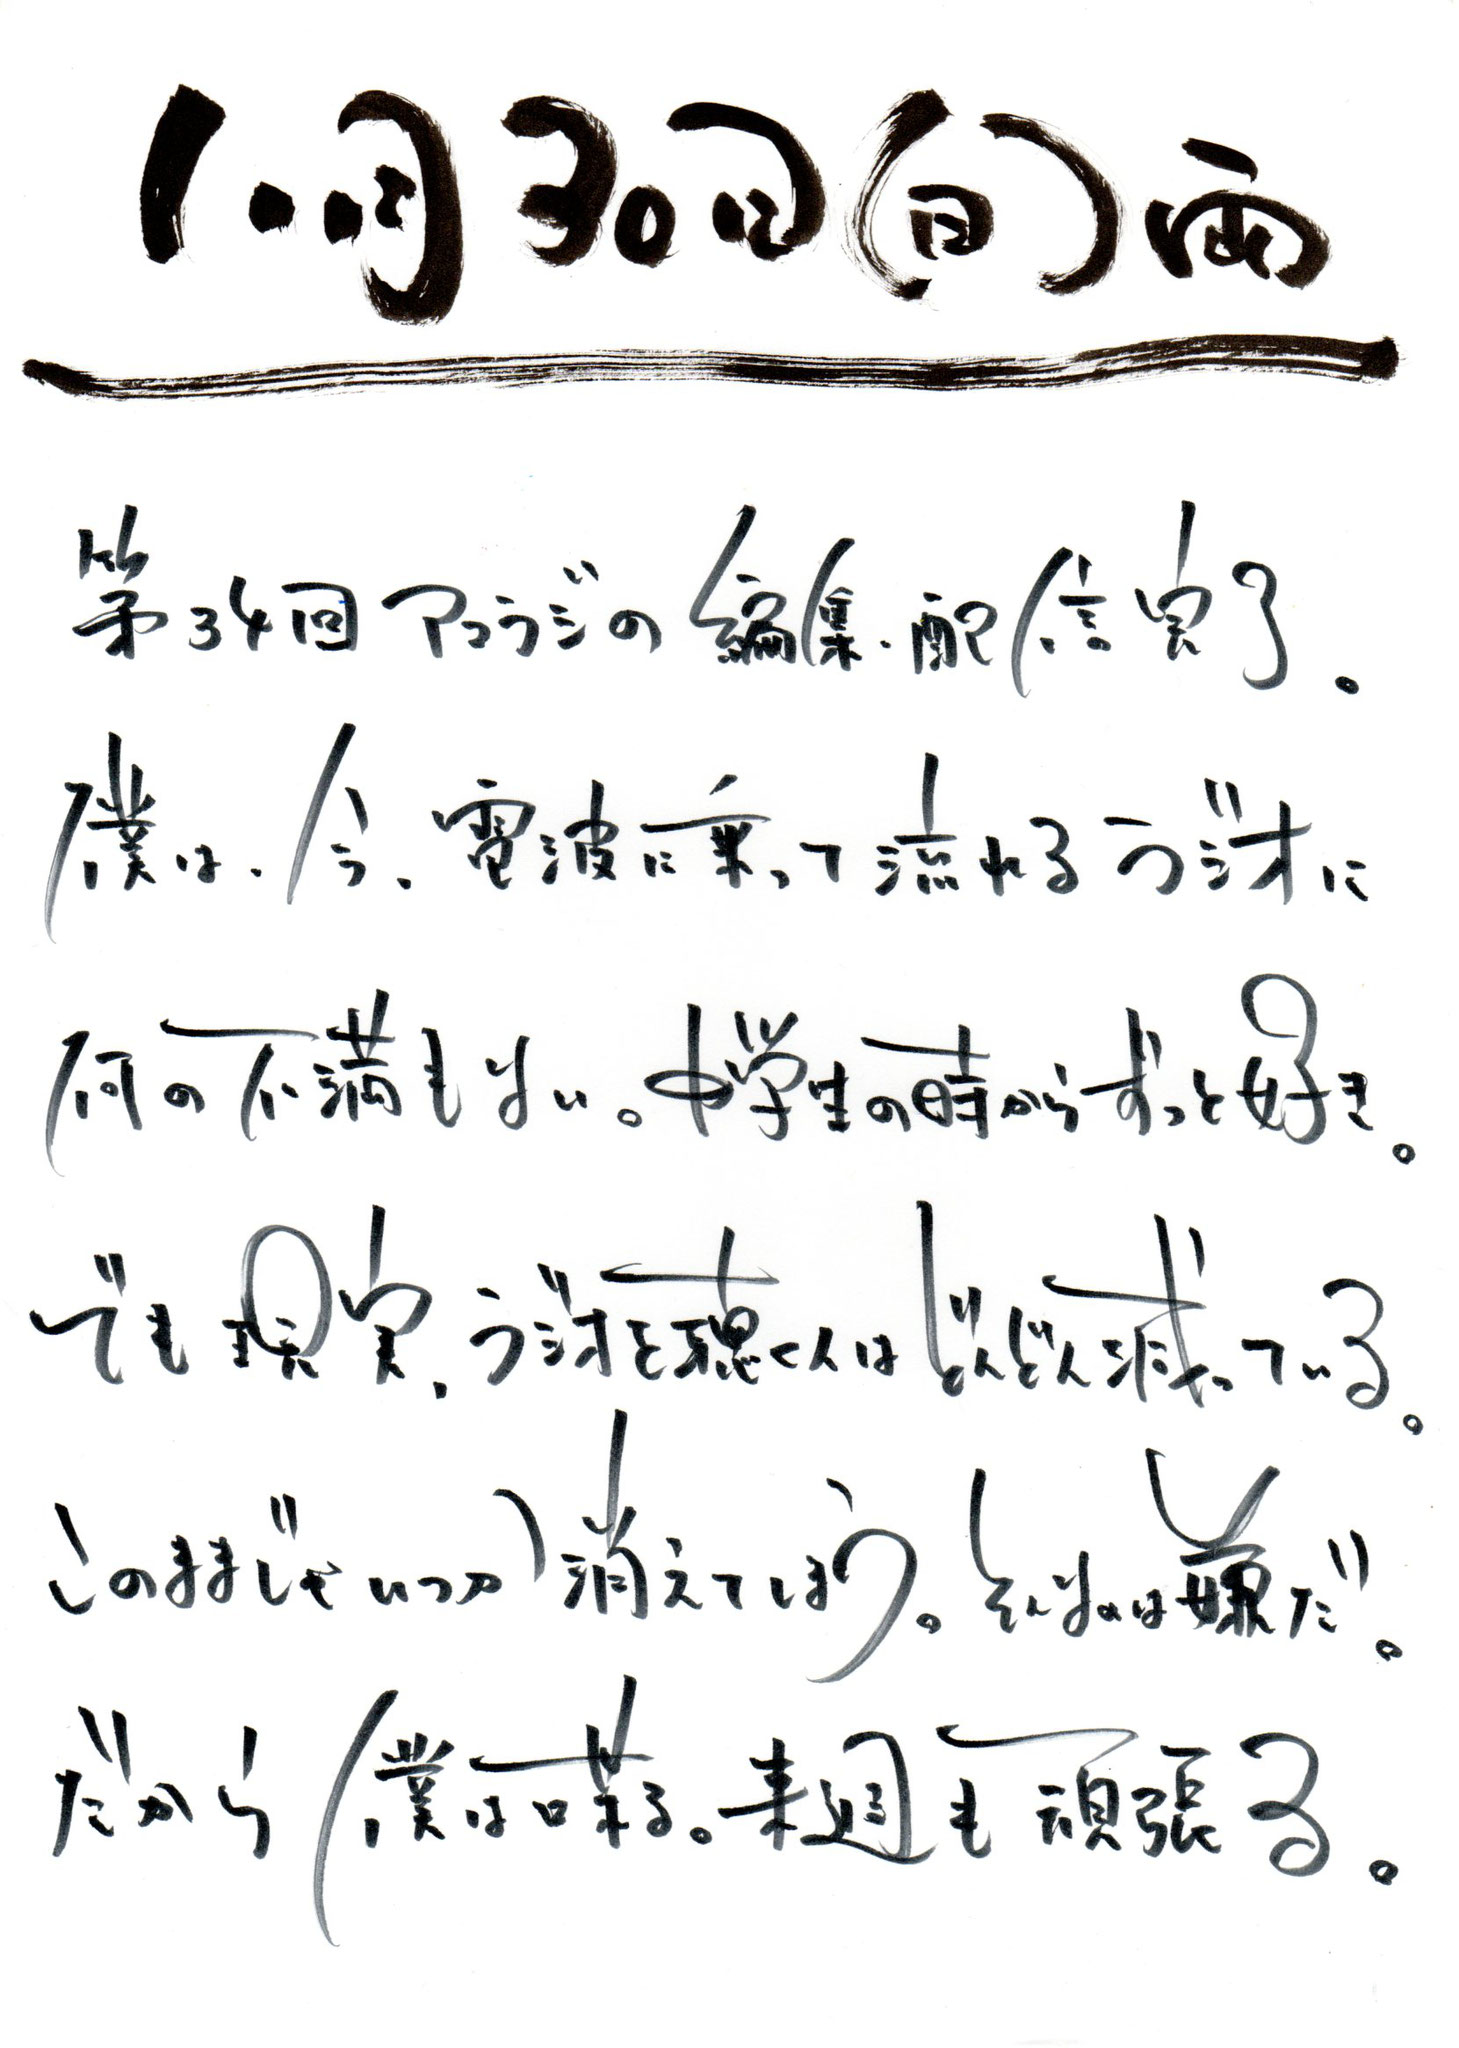 10月30日(日)雨
第34回アコラジの編集・配信完了。
僕は、今、電波に乗って流れるラジオに
何の不満もない。中学生の時からずっと好き。
でも現実、ラジオを聴く人はどんどん減っている。
このままじゃいつか消えてしまう。そんなのは嫌だ。
だから僕は喋る。来週も頑張る。